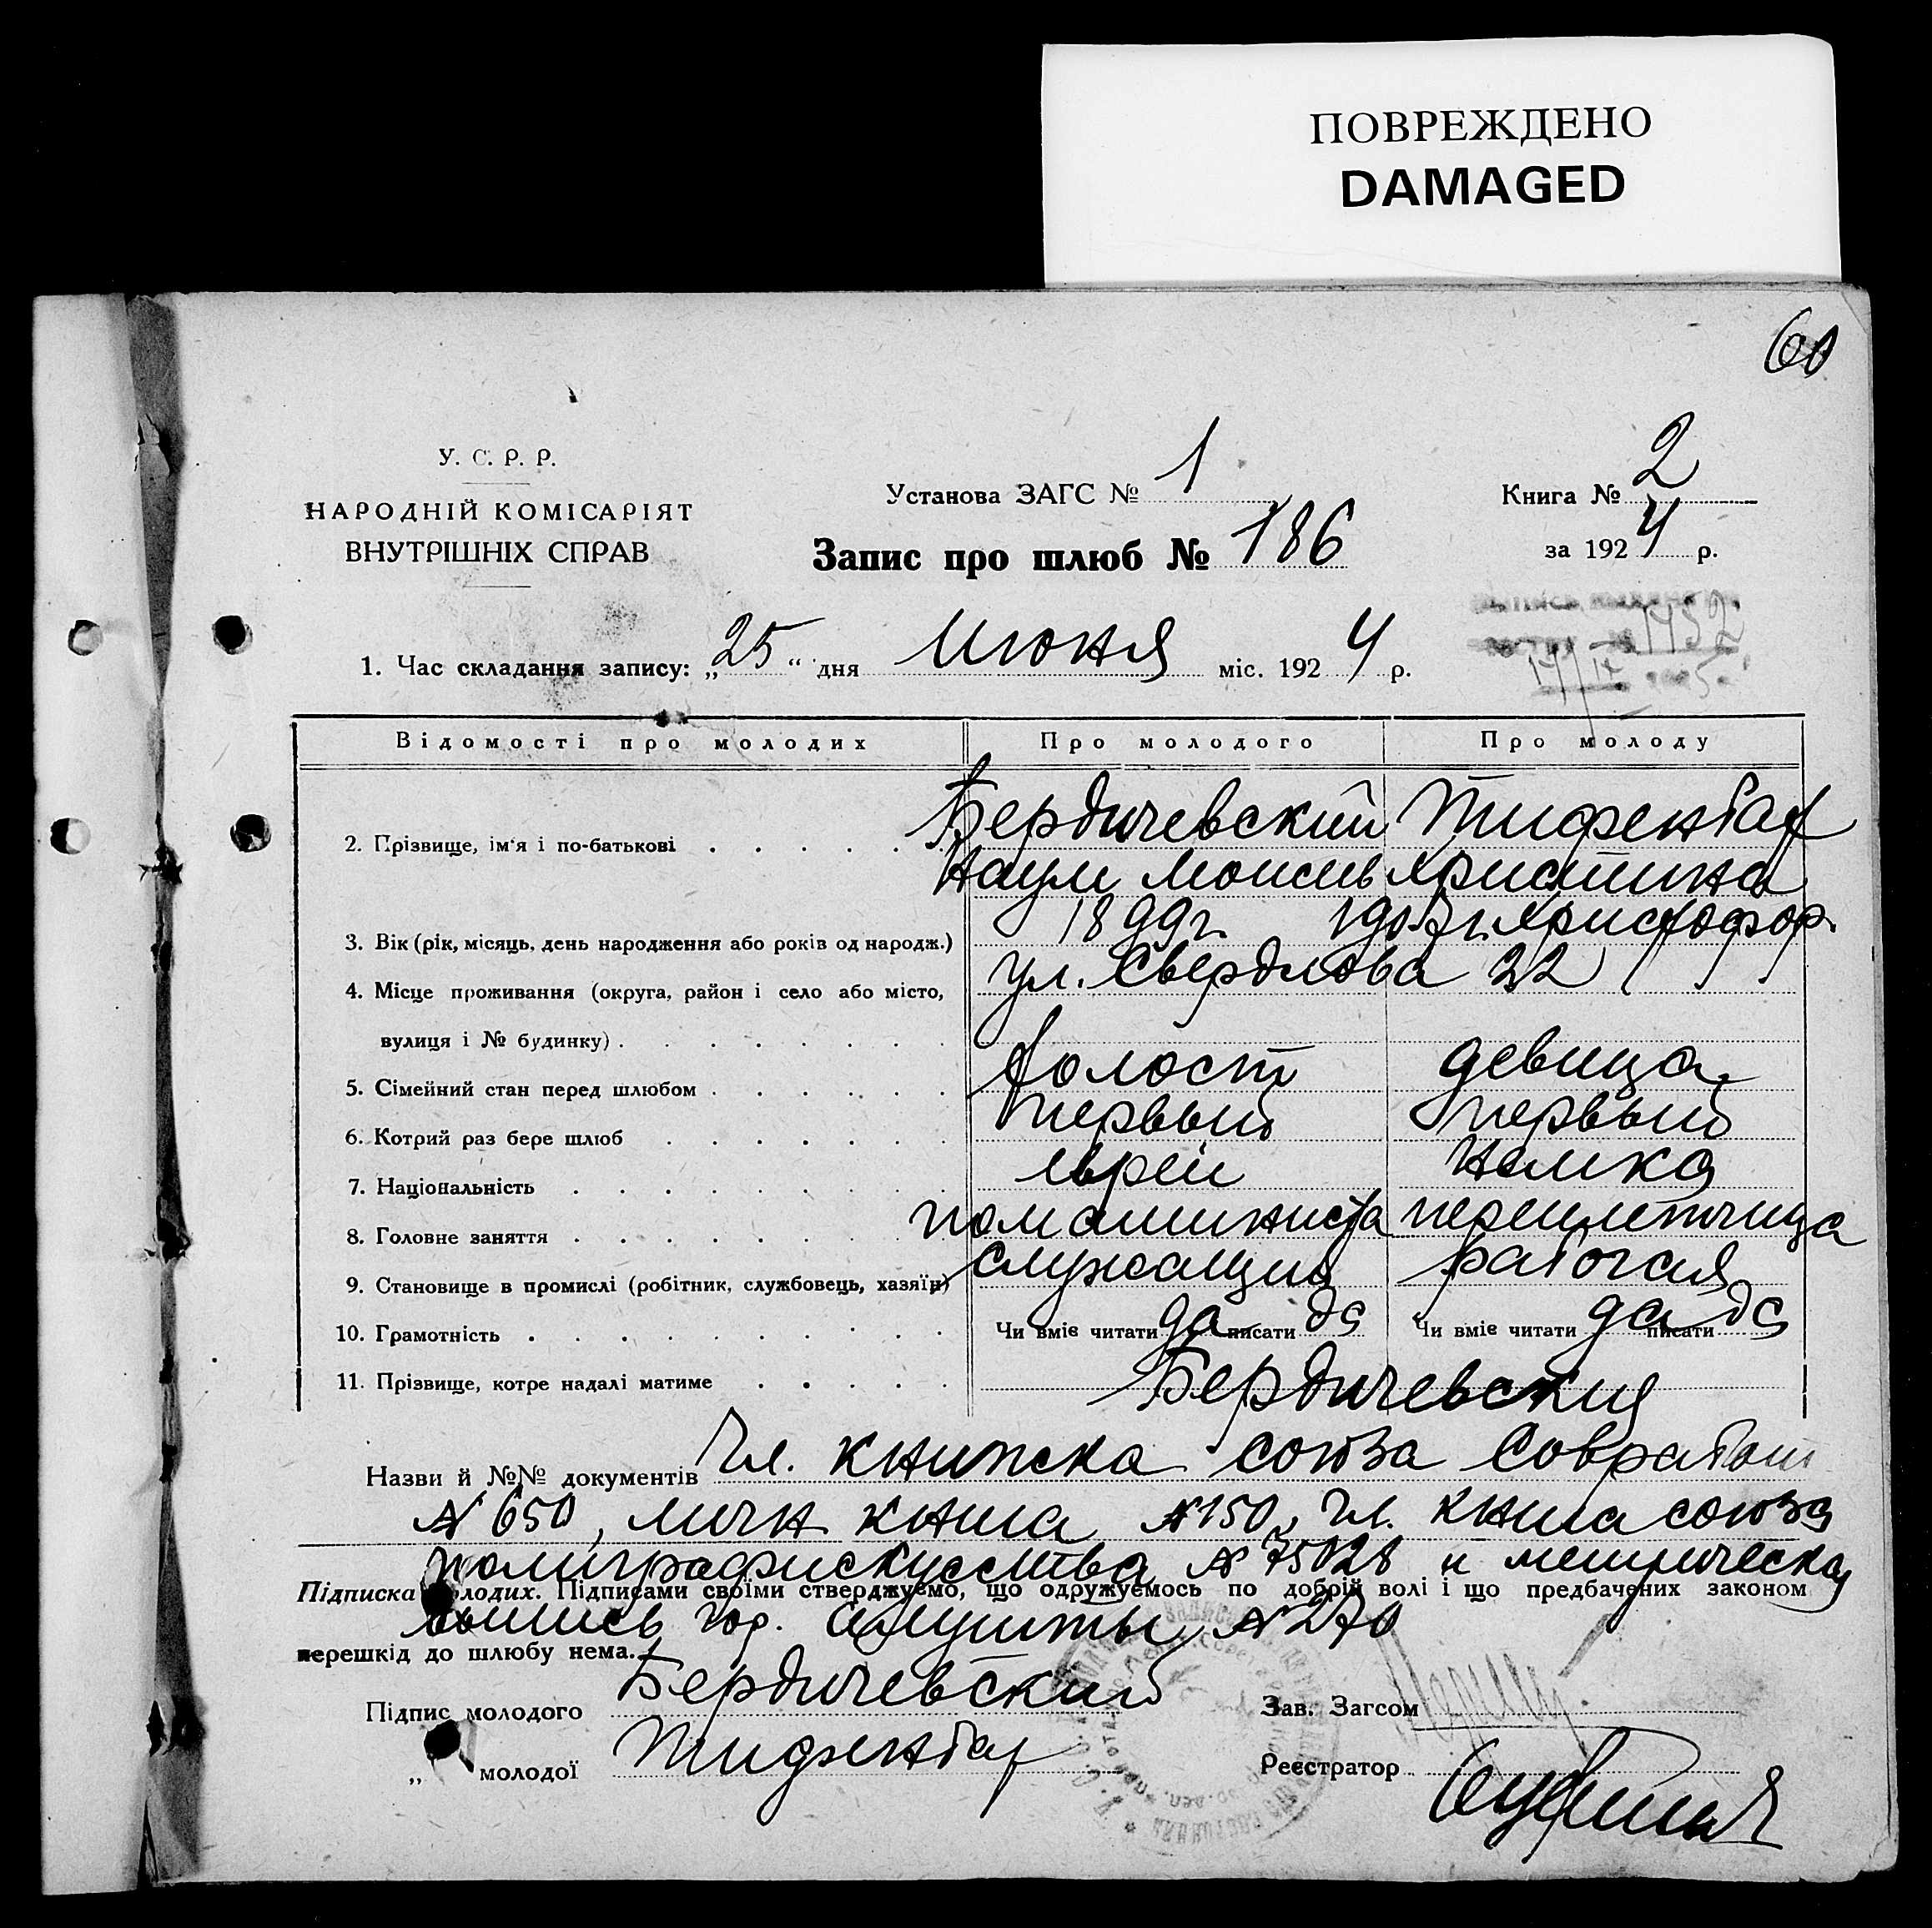 ПОВРЕЖДЕНО
DAMAGED
60
У. С. Р. Р.
НАРОДНІЙ КОМІСАРІЯТ
ВНУТРІШНІХ СПРАВ
Установа ЗАГС № 1
Книга № 2
Запис про шлюб № 186
за 1924 р.
1. Час складання запису: „25“ дня Июня міс. 1924 р.
Відомості про молодих Про молодого Про молоду
2. Прізвище, ім'я і по-батькові Бердичевский Тифенбах
Наум Моисеев Христина
3. Вік (рік, місяць, день народження або років од народж.) 1899 г. Христофор.
4. Місце проживання (округа, район і село або місто, ул. Свердлова 22
вулиця і № будинку)
5. Сімейний стан перед шлюбом холост девица
6. Котрий раз бере шлюб первый первый
7. Національність еврей немка
8. Головне заняття пом машиниста переплетчица
9. Становище в промислі (робітник, службовець, хазяїн) служащий рабочая
10. Грамотність Чи вміє читати да писати да Чи вміє читати да писати да
11. Прізвище, котре надалі матиме Бердичевский
Назви й №№ документів Чл. книжка союза Совработ
№ 650, личн книга №150, чл. книга союза
полиграфискусства № 75028 и метрическая
Підписка молодих. Підписами своїми стверджуємо, що одружуємось по добрій волі і що предбачених законом
выпись гор. Алушты № 270
перешкід до шлюбу нема.
Підпис молодого Бердичевский Зав. Загсом
„ молодої Тифенбах Реєстратор